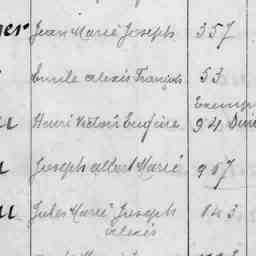 Jean Marie Joseph 357
Emile Alexis François 53
Exemp
Henri Victor Eugène 94
Joseph Albert Marie 957
Jules Marie Joseph 143
Alexis